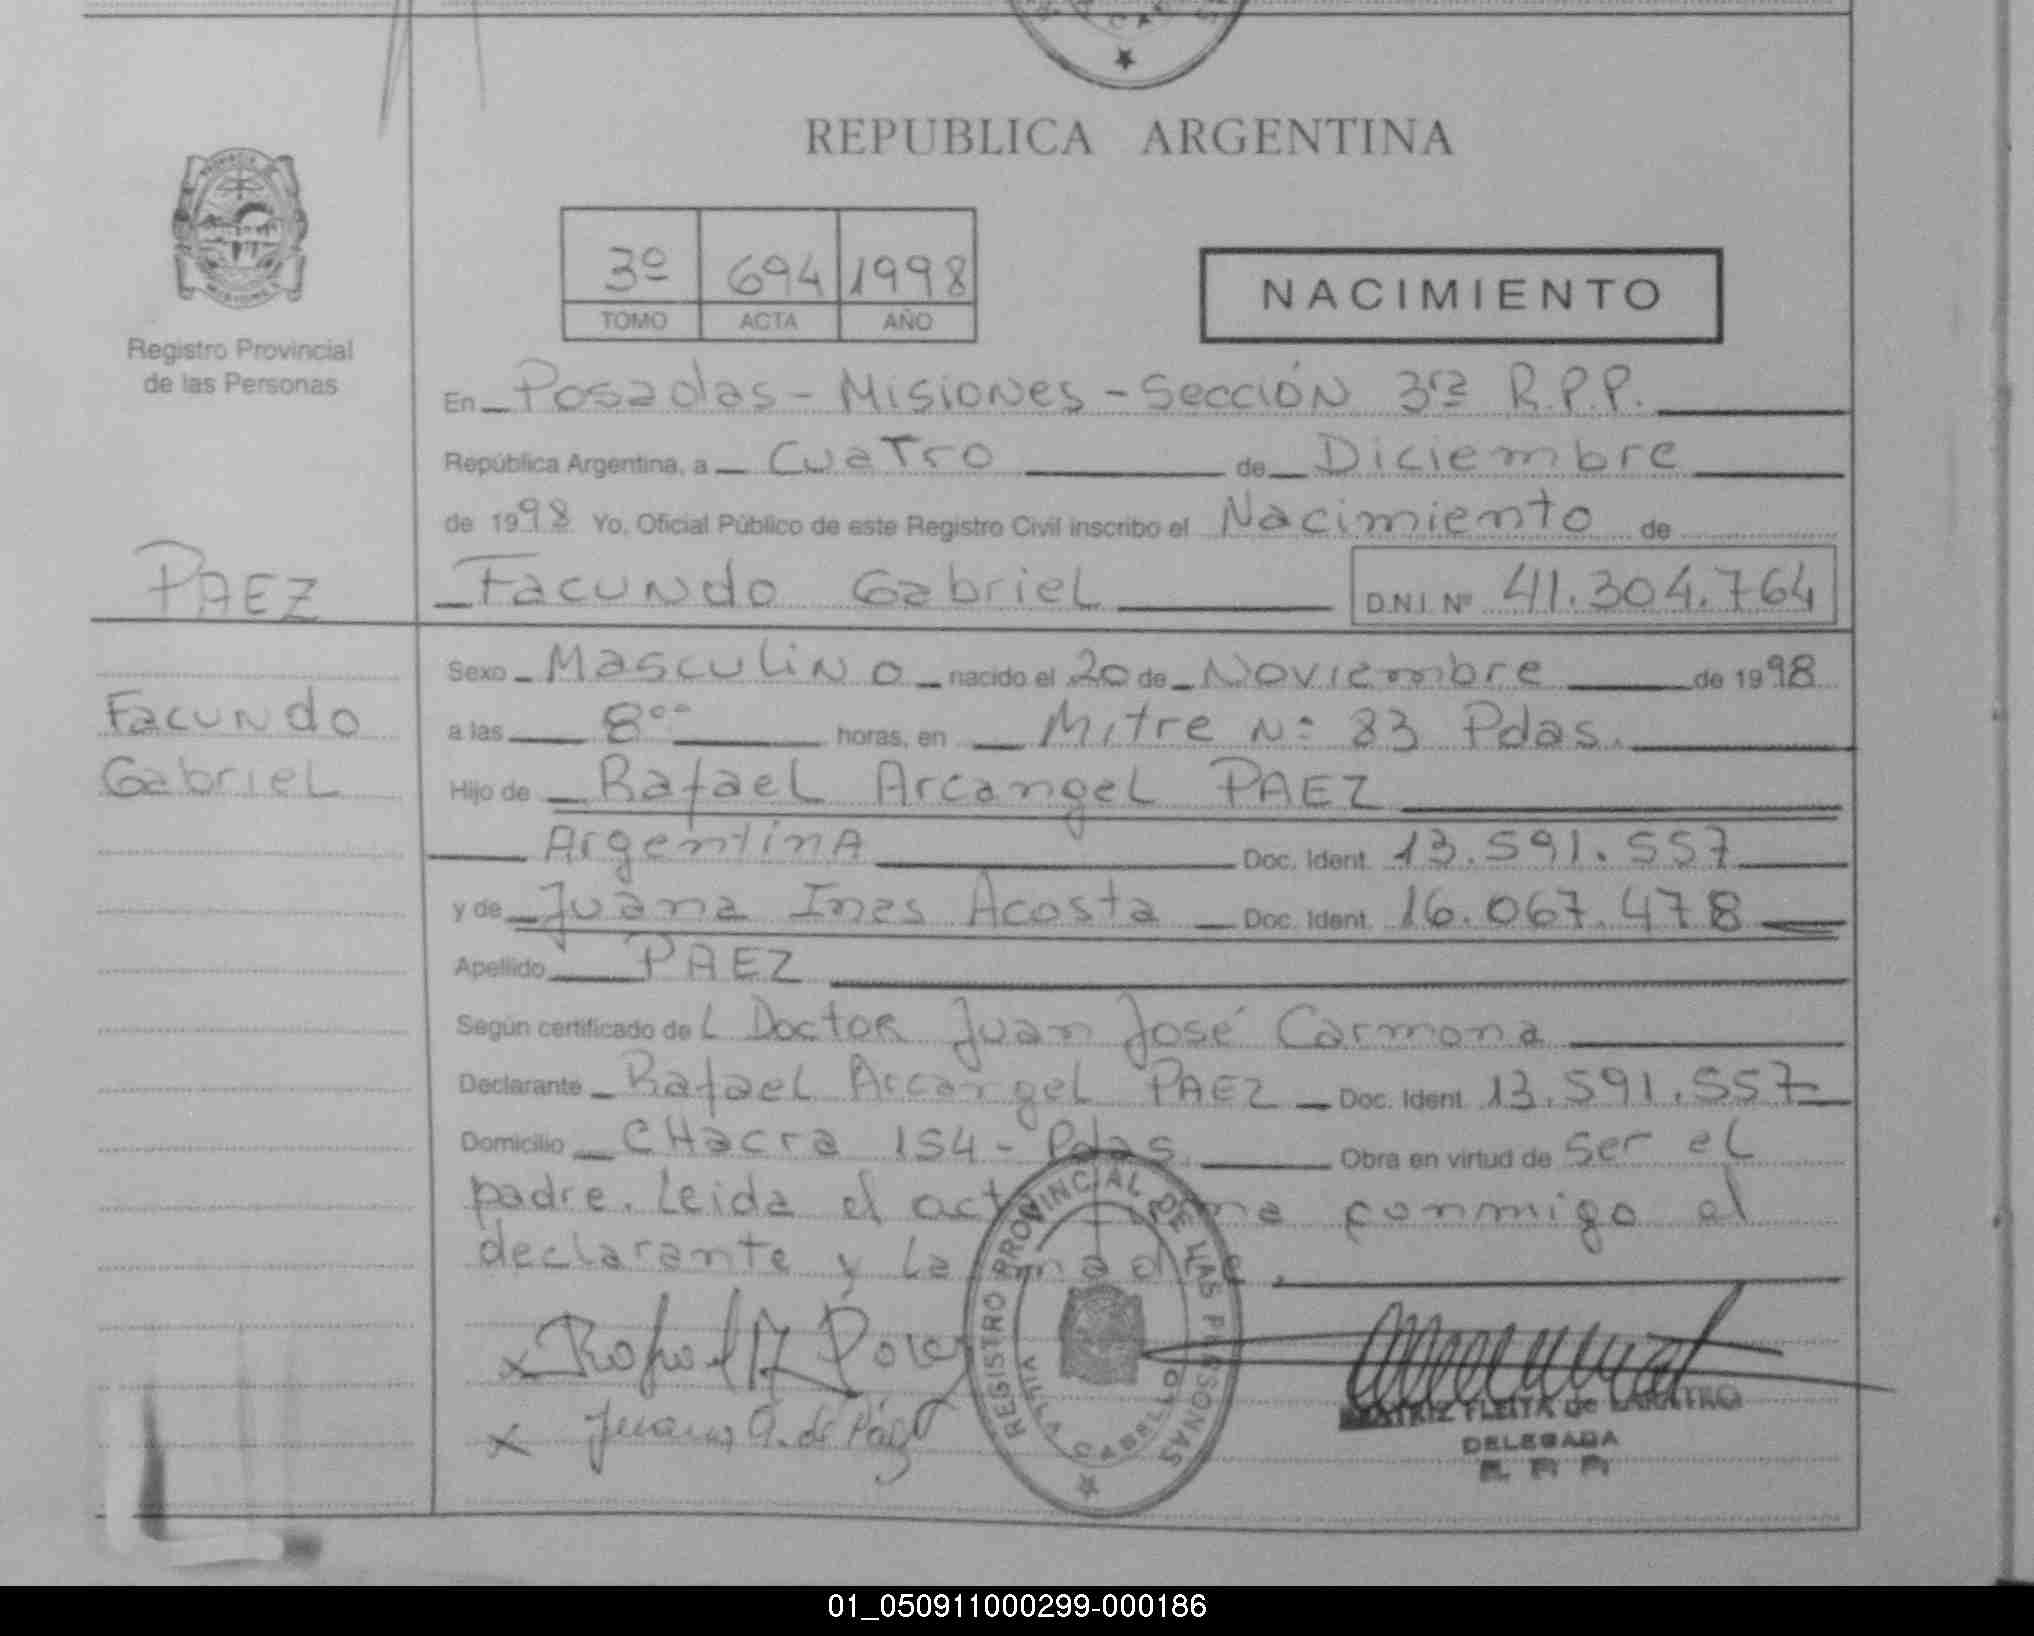 REPUBLICA ARGENTINA
3º 694 1998
TOMO ACTA AÑO
NACIMIENTO
Registro Provincial
de las Personas
En Posadas - Misiones - Sección 3ra R.P.P.
República Argentina, a Cuatro de Diciembre
de 1998 Yo, Oficial Público de este Registro Civil inscribo el Nacimiento de
PAEZ
Facundo Gabriel D.N.I. Nº 41.304.764
Sexo Masculino nacido el 20 de Noviembre de 1998
Facundo
Gabriel
a las 8°° horas, en Mitre N: 83 Pdas.
Hijo de Rafael Arcangel PAEZ
Argentina Doc. Ident. 13.591.557
y de Juana Ines Acosta Doc. Ident. 16.067.478
Apellido PAEZ
Según certificado de L Doctor Juan José Carmona
Declarante Rafael Arcangel PAEZ Doc. Ident. 13.591.557
Domicilio CHacra 154 - Pdas. Obra en virtud de ser el
padre. Leida el acta conmigo el
declarante y la madre.
REGISTRO PROVINCIAL DE LAS PERSONAS
VILLA CABELLO
Rafael A Paez
Juana A. de Páez
BEATRIZ FLEITA de
DELEGADA
01_050911000299-000186